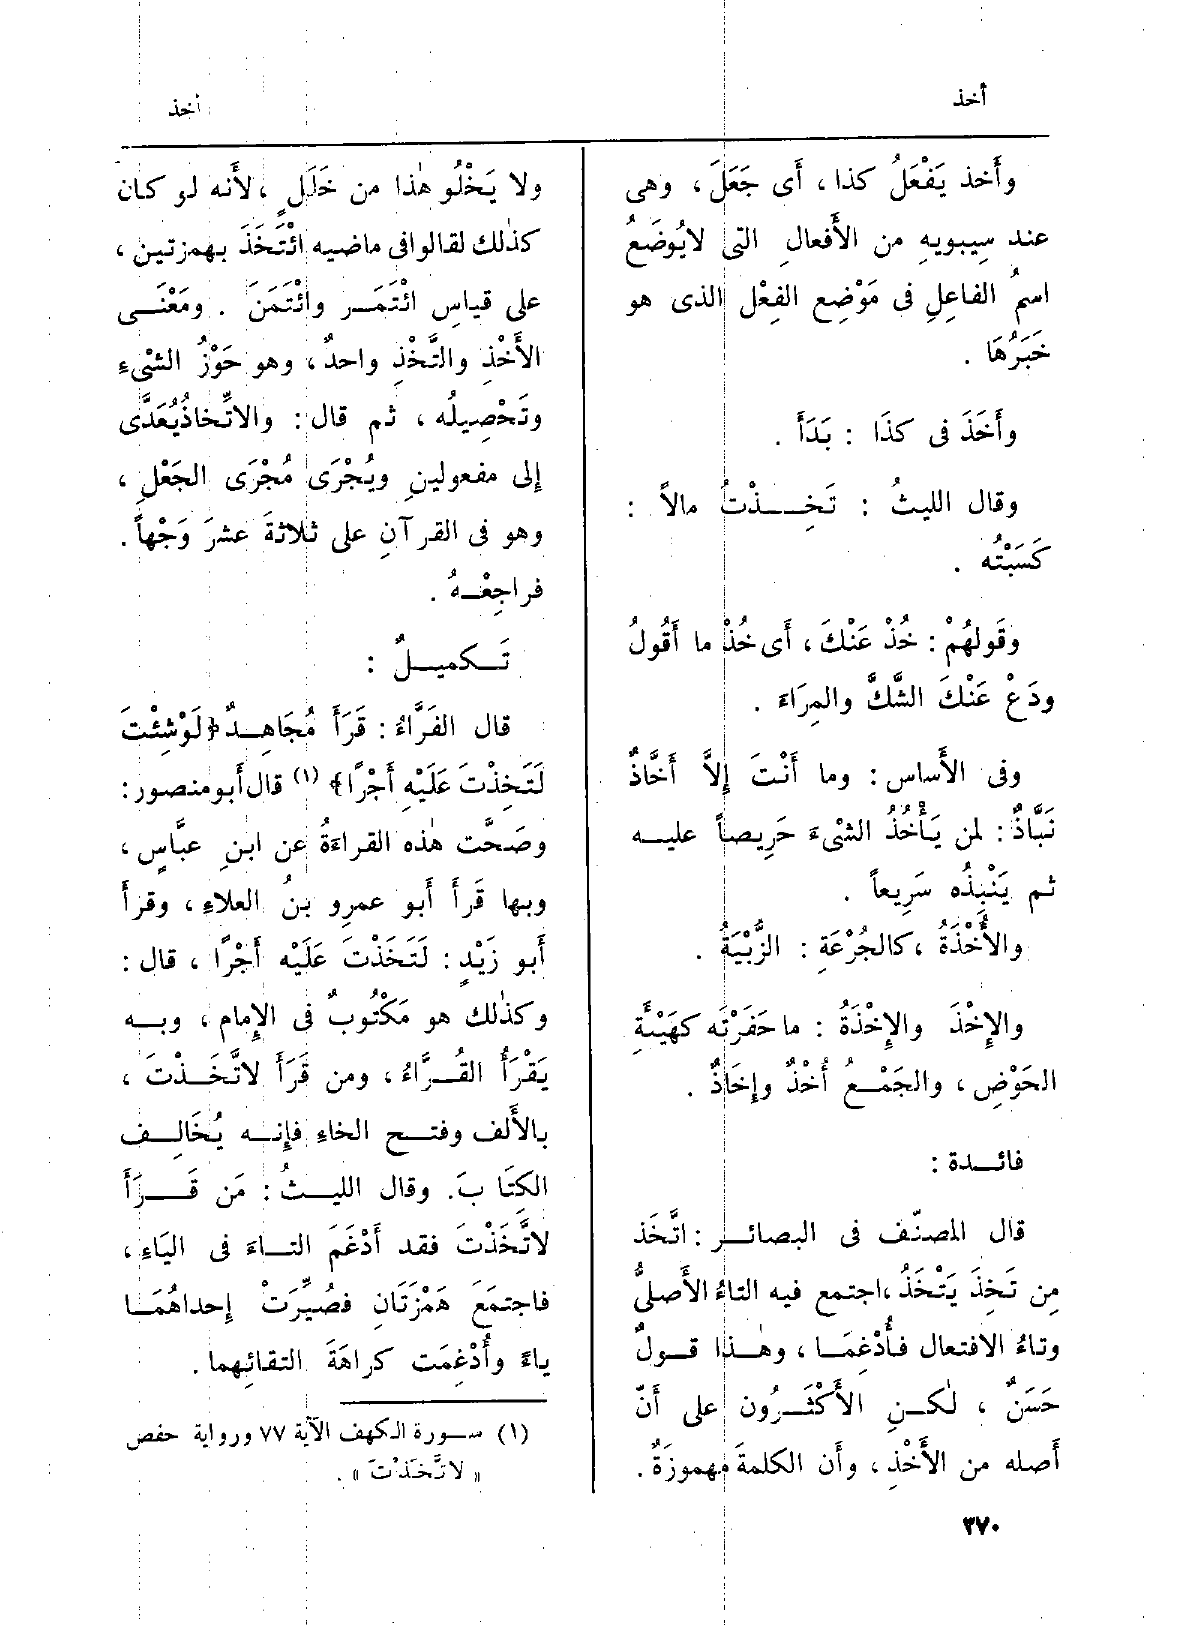 أخذ
أخذ
وأخذ يَفْعَلُ كذا ، أَى جَعَلَ ، وهى
عند سِيبويهِ من الأَفعالِ التى لايُوضَعُ
اسمُ الفاعلِ فى مَوْضِع الفِعْل الذى هو
خَبَرُهَا .
وأَخَذَ فى كذَا : بَدَأَ .
وقال الليثُ : تَخِـذْتُ مالاً :
كَسَبْتُه .
وقَولهُمْ : خُذْ عَنْكَ ، أَى خُذْ ما أَقُولُ
ودَعْ عَنْكَ الشَّكَّ والمِرَاءَ .
وفى الأَساس : وما أَنْتَ إِلاَّ أَخَّاذٌ
نَبَّاذٌ : لمن يَأْخُذُ الشىْءَ حَرِيصاً عليه
ثم يَنْبِذُه سَرِيعاً .
والأُخْذَةُ ، كالجُرْعَةِ : الزُّبْيَةُ .
والإِخْذَ والإِخْذَةُ : ما حَفَرْتَه كهَيْئَةِ
الحَوْضِ ، والجَمْعُ أُخْذٌ وإِخَاذٌ .
فائدة :
قال المصنّف فى البصائر : اتَّخَذ
مِن تَخِذَ يَتْخَذُ ، اجتمع فيه التاءُ الأَصلىُّ
وتاءُ الافتعال فأُدْغِمَا ، وهٰذا قولٌ
حَسَنٌ ، لٰكنِ الأَكْثَرُون على أَنّ
أَصله من الأَخْذِ ، وأَن الكلمةَ مهموزَةٌ .
ولا يَخْلُو هٰذا من خَلَلٍ ، لأَنه لو كان
كذٰلك لقالوا فى ماضيه ائْتَخَذَ بهمزتين ،
على قياسِ ائْتَمَر وائْتَمَنَ . ومَعْنَى
الأَخْذِ والتَّخْذِ واحدٌ ، وهو حَوْزُ الشىْءِ
وتَحْصِيلُه ، ثم قال : والاتِّخاذُ يُعَدَّى
إِلى مفعولينِ ويُجْرَى مُجْرَى الجَعْلِ ،
وهو فى القرآنِ على ثلاثةَ عشرَ وَجْهاً .
فراجِعْهُ .
تَكميلٌ :
قال الفَرَّاءُ : قَرَأَ مُجَاهِدٌ ﴿لَوْشِئْتَ
لَتَخِذْتَ عَلَيْهِ أَجْرًا﴾ (١) قال أَبو منصور :
وصَحَّت هٰذه القراءَةُ عن ابنِ عبَّاسٍ ،
وبها قَرأَ أَبو عمرِو بنُ العلاءِ ، وقرأَ
أَبو زَيْدٍ : لَتَخَذْتَ عَلَيْه أَجْرًا ، قال :
وكذٰلك هو مَكْتُوبٌ فى الإِمام ، وبه
يَقْرَأُ القُرَّاءُ ، ومن قَرَأَ لاتَّخَذْتَ ،
بالأَلف وفتح الخاءِ فإِنه يُخَالِف
الكِتَابَ. وقال الليثُ : مَن قَرَأَ
لاتَّخَذْتَ فقد أَدْغَمَ التاءَ فى اليَاءِ ،
فاجتمَعَ هَمْزَتَانِ فصُيِّرَتْ إِحداهُمَا
ياءً وأُدْغِمَت كراهَةَ التقائِهما .
(١) سورة الكهف الآية ٧٧ ورواية حفص
« لاتَّخَذْتَ » .
٣٧٠